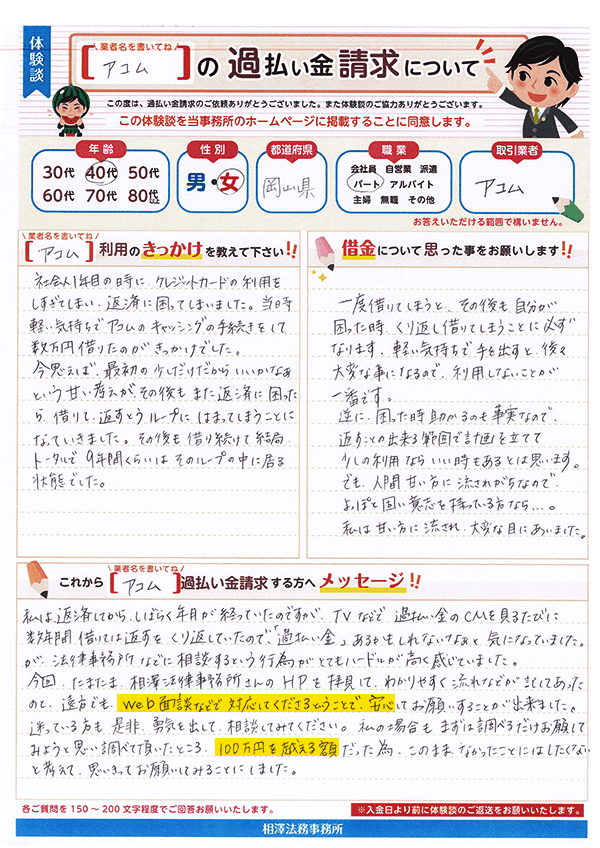 体験談
業者名を書いてね
[アコム]の過払い金請求について
この度は、過払い金請求のご依頼ありがとうございました。また体験談のご協力ありがとうございます。
この体験談を当事務所のホームページに掲載することに同意します。
年齢
30代 40代 50代
60代 70代 80代以上
性別
男・女
都道府県
岡山県
職業
会社員 自営業 派遣
パート アルバイト
主婦 無職 その他
取引業者
アコム
お答えいただける範囲で構いません。
業者名を書いてね
[アコム]利用のきっかけを教えて下さい!!
社会人1年目の時に、クレジットカードの利用を
しすぎてしまい、返済に困ってしまいました。当時
軽い気持ちでアコムのキャッシングの手続きをして
数万円借りたのがきっかけでした。
今思えば、最初の少しだけだからいいかなぁ
という甘い考えが、その後もまた返済に困った
ら、借りて、返すとうループにはまってしまうことに
なっていきました。その後も借り続けて結局
トータルで9年間くらいはそのループの中に居る
状態でした。
借金について思った事をお願いします!!
一度借りてしまうと、その後も自分が
困った時、くり返し借りてしまうことに必ず
なります。軽い気持ちで手を出すと、後々
大変な事になるので、利用しないことが
一番です。
逆に、困った時助かるのも事実なので、
返すことの出来る範囲で計画を立てて
少しの利用ならいい時もあるとは思います。
でも、人間甘い方に流されがちなので、
よっぽど固い意志を持っている方なら...。
私は甘い方に流され、大変な目にあいました。
業者名を書いてね
これから[アコム]過払い金請求する方へメッセージ!!
私は、返済してから、しばらく年月が経っていたのですが、TVなどで過払い金のCMを見るたびに
数年間借りては返すをくり返していたので、「過払い金」あるかもしれないなぁと気になっていました。
が、法律事務所などに相談するという行為がとてもハードルが高く感じていました。
今回、たまたま、相澤法律事務所さんのHPを拝見して、わかりやすく流れなどが記してあった
のと、遠方でも、web面談などで対応してくださるということで、安心してお願いすることが出来ました。
迷っている方も是非、勇気を出して、相談してみてください。私の場合もまずは調べるだけお願して
みようと思い調べて頂いたところ、100万円を越える額だった為、このままなかったことにはしたくない
と考えて、思いきってお願いしてみることにしました。
各ご質問を150～200文字程度でご回答お願いいたします。
※入金日より前に体験談のご返送をお願いいたします。
相澤法務事務所